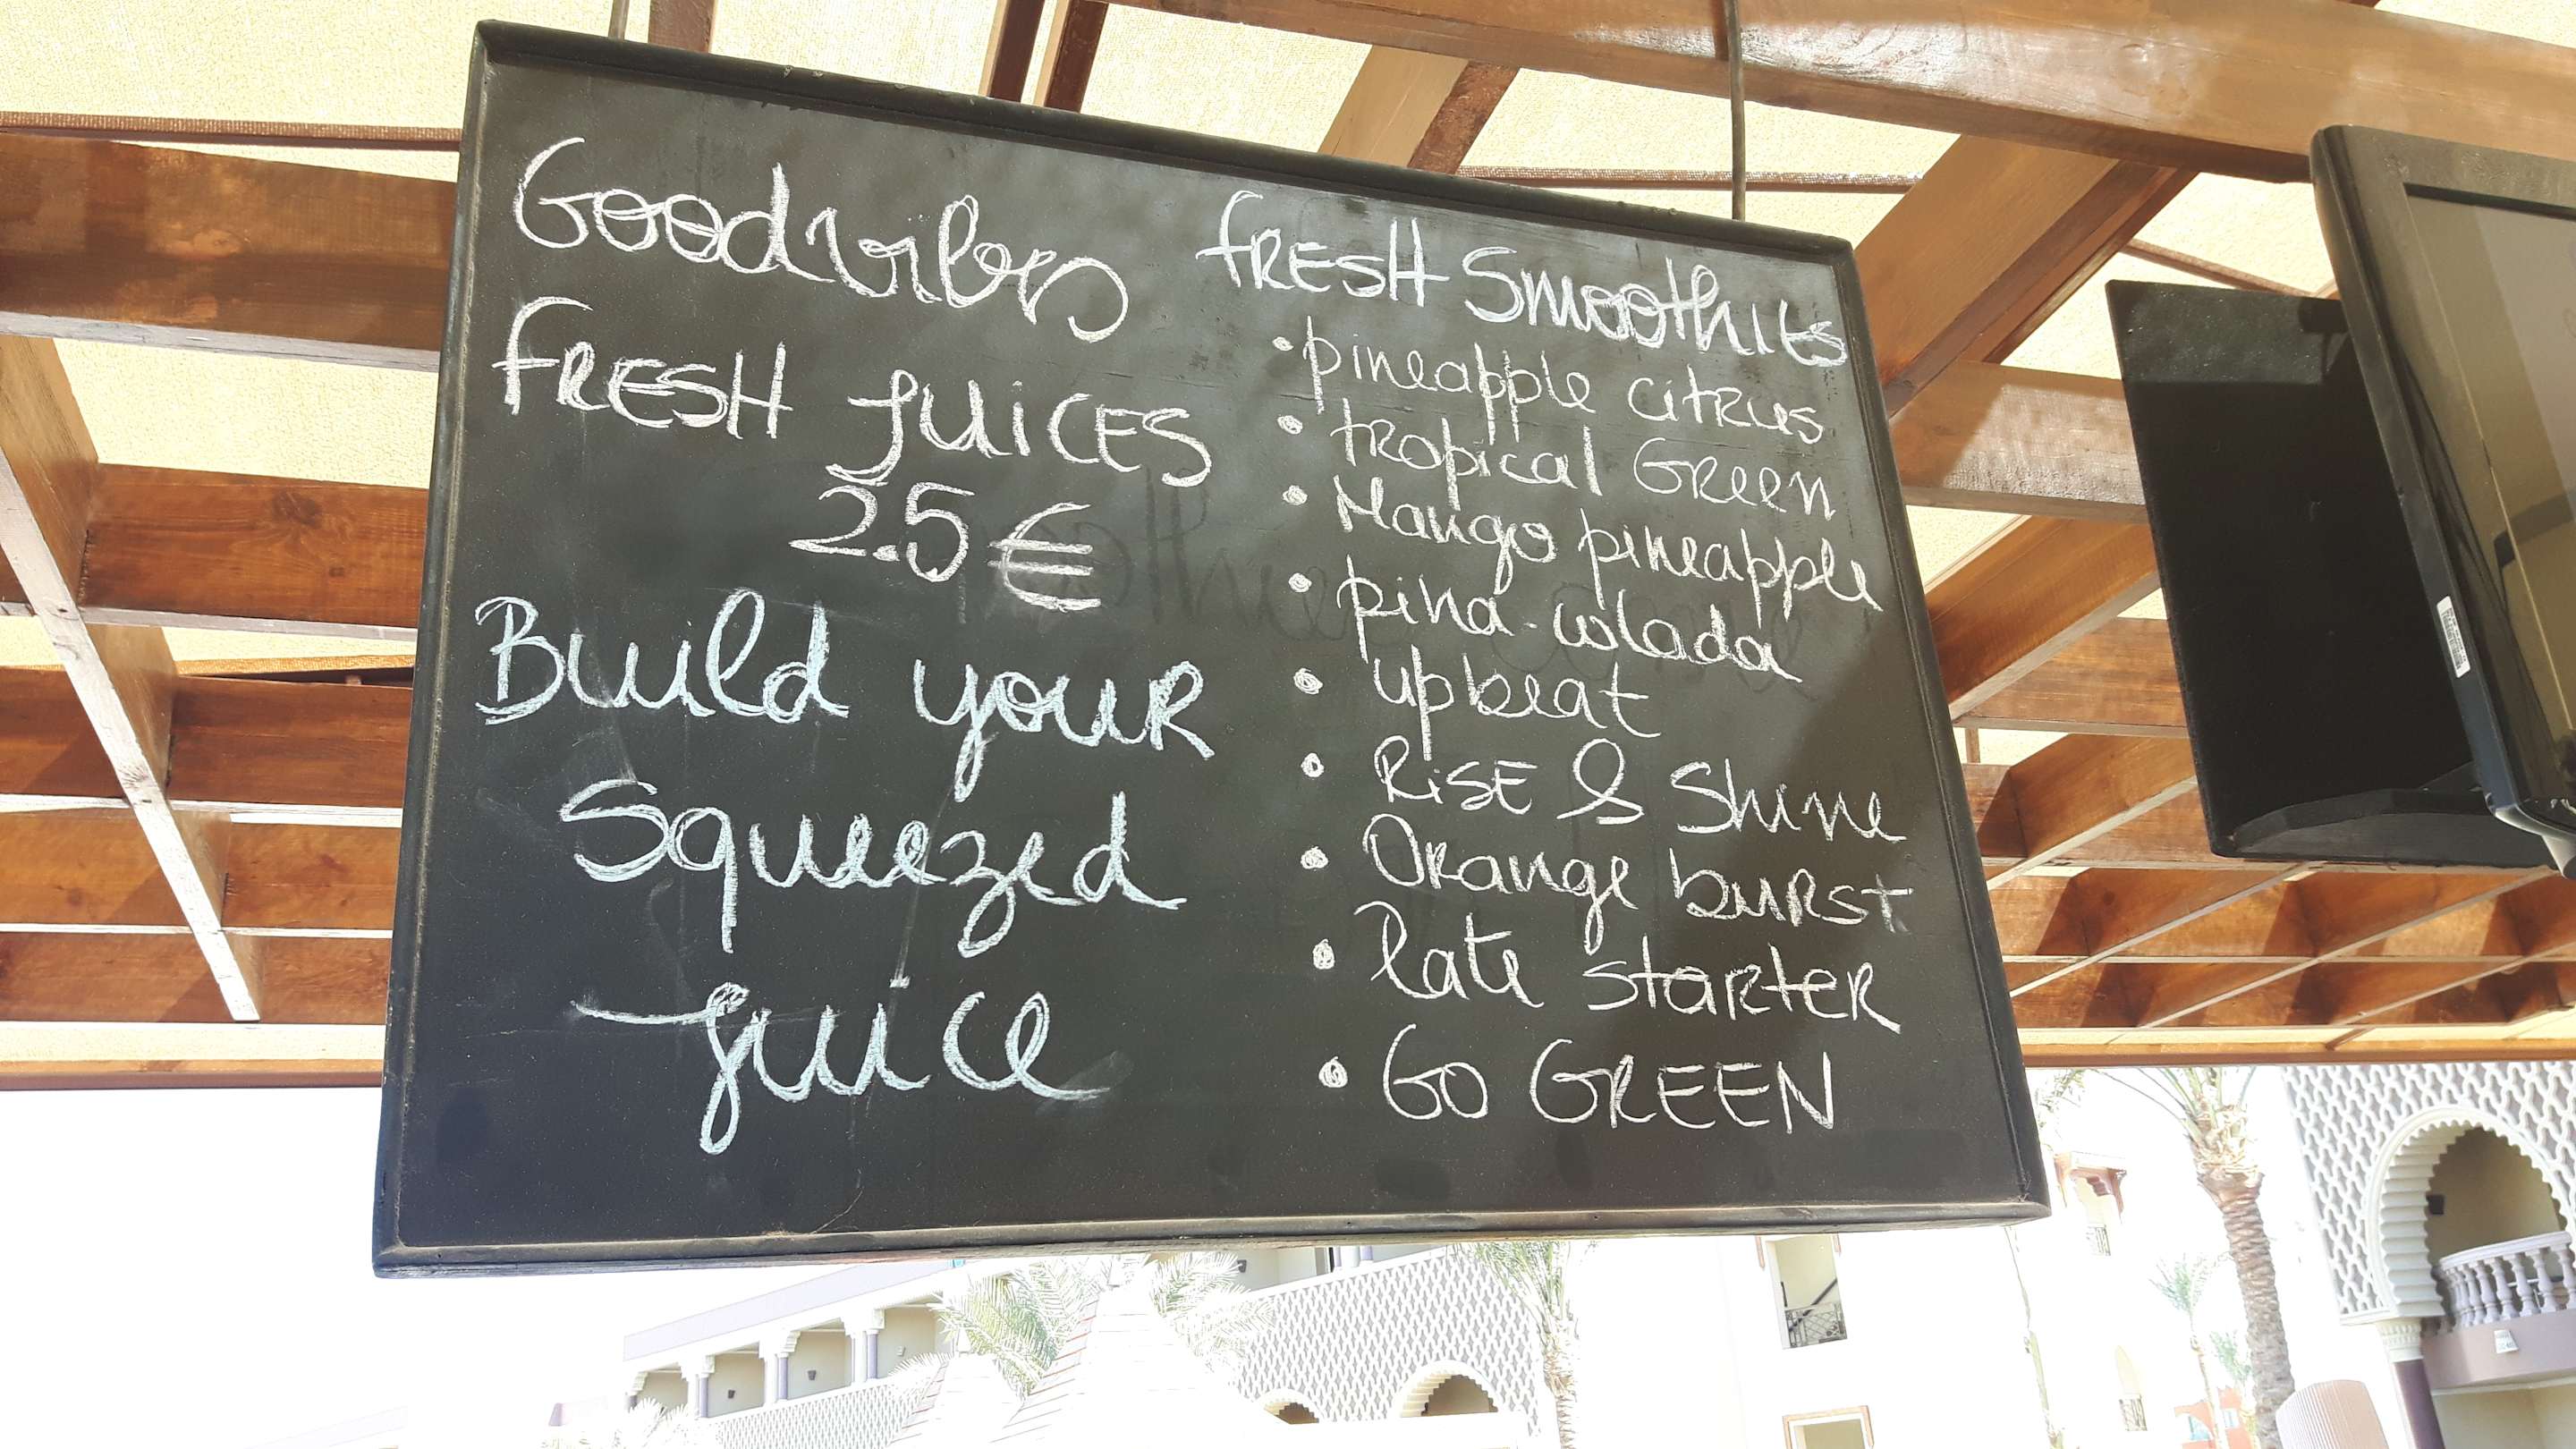 Goodvibes
fRESH JUiCES
2.5€
Build youR
Squeezed
Juice
fRESH Smoothies
• pineapple citRus
• tRopical GReen
• Mango pineapple
• pina-colada
• upbeat
• RiSE & Shine
• ORange buRst
• late staRteR
• GO GREEN